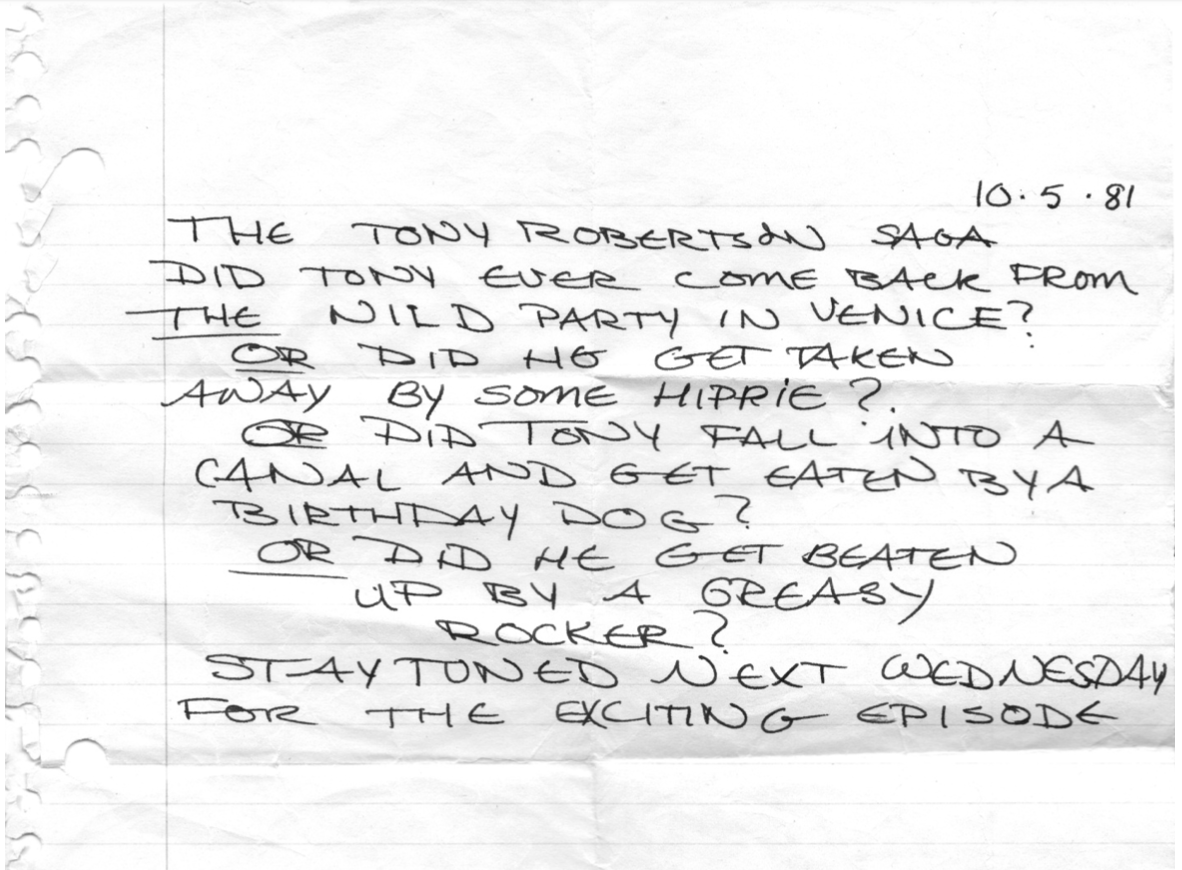 10.5.81
THE TONY ROBERTSON SAGA
DID TONY EVER COME BACK FROM
THE WILD PARTY IN VENICE?
OR DID HE GET TAKEN
AWAY BY SOME HIPPIE?
OR DID TONY FALL INTO A
CANAL AND GET EATEN BY A
BIRTHDAY DOG?
OR DID HE GET BEATEN
UP BY A GREASY
ROCKER?
STAY TUNED NEXT WEDNESDAY
FOR THE EXCITING EPISODE